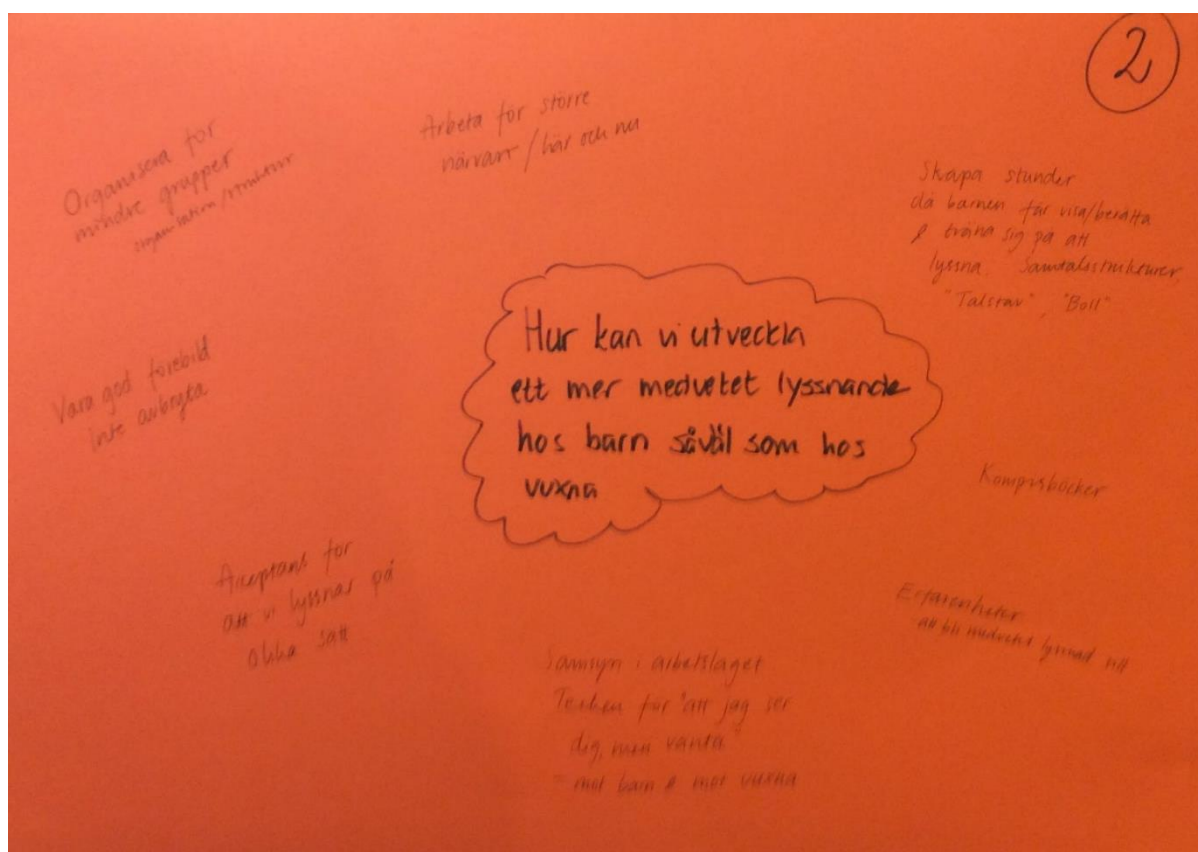 2
Organisera för
mindre grupper
organisation/struktur
Arbeta för större
närvaro / här och nu
Skapa stunder
då barnen får visa/berätta
& träna sig på att
lyssna. Samtalsstrukturer,
"Talstav", "Boll"
Hur kan vi utveckla
ett mer medvetet lyssnande
hos barn såväl som hos
vuxna
Vara god förebild
Inte avbryta
Kompisböcker
Acceptans för
att vi lyssnar på
olika sätt
Erfarenheter
att bli medvetet lyssnad till
Samsyn i arbetslaget
Tecken för "att jag ser
dig, men vänta"
mot barn & mot vuxna